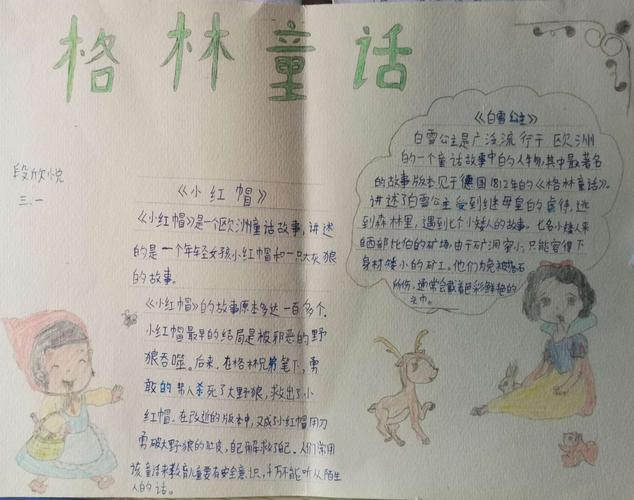 格林童话
段欣悦
三.一
《小红帽》
《小红帽》是一个欧洲童话故事,讲述
的是一个年轻女孩小红帽和一只大灰狼
的故事。
《小红帽》的故事原本多达一百多个.
小红帽最早的结局是被邪恶的野
狼吞噬。后来,在格林兄弟笔下,勇
敢的男人杀死了大野狼,救出了小
红帽.在改进的版本中,又成了小红帽用刀
割破大野狼的肚皮,自己解救了自己.人们常用
该童话来教育儿童要有安全意识,千万不能听从陌生
人的话。
《白雪公主》
白雪公主是广泛流行于欧洲
的一个童话故事中的人物,其中最著名
的故事版本见于德国1812年的《格林童话》.
讲述了白雪公主受到继母皇后的虐待,逃
到森林里,遇到七个小矮人的故事。七名小矮人来
自西部比伯的矿场,由于矿洞窄小,只能容得下
身材矮小的矿工。他们为免被落石
所伤,通常会戴着色彩鲜艳的
头巾。